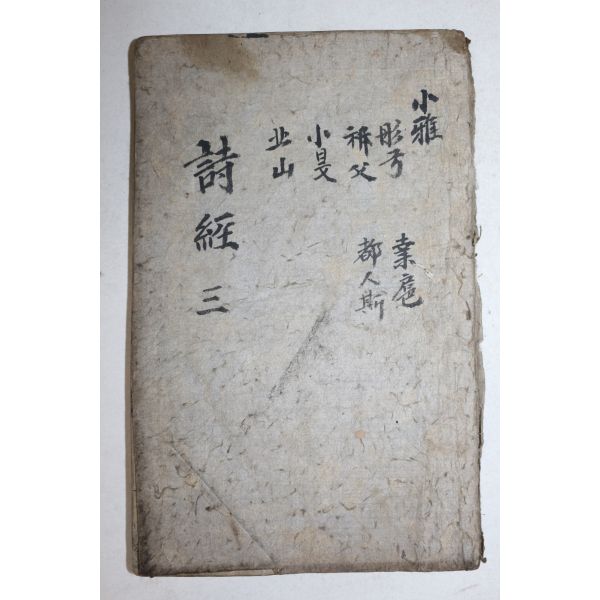 小雅
彤弓
桒扈
祈父
都人斯
小旻
北山
詩經 三